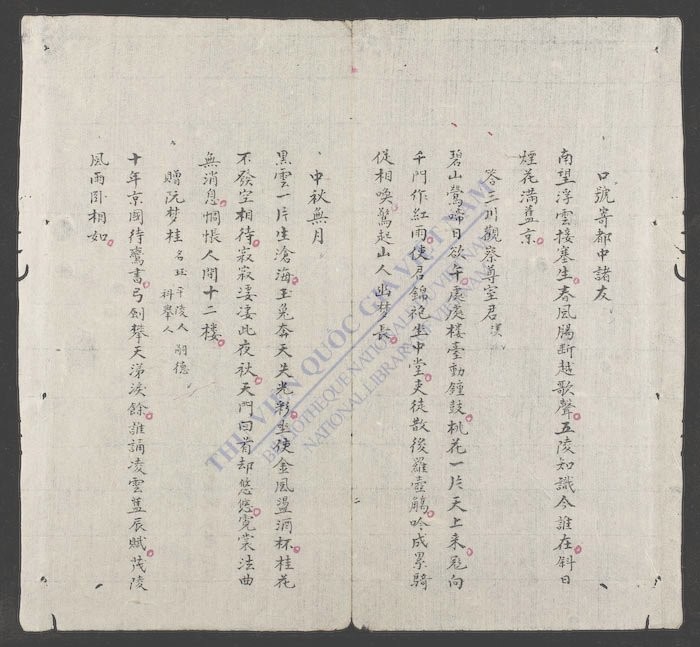 口號寄都中諸友
南望浮雲接塞生春風腸斷越歌聲五陵知識今誰在斜日
煙花滿蓋京
答三川觀察尊室君
碧山鶯啼日欲午處處樓臺動鐘鼓桃花一片天上來飛向
千門作紅雨使君錦袍坐中堂吏徒散後羅壺觴吟成累騎
促相喚驚起山人幽梦長
中秋無月
黑雲一片生滄海玉兔奔天失光彩坐使金風盪酒杯桂花
不發空相待寂寂凄凄此夜秋天門回首却悠悠霓裳法曲
無消息惆悵人間十二楼
贈阮梦桂 名珏平陵人嗣德科舉人
十年京國待鶯書弓劍攀天涕淚餘誰誦凌雲藍辰賦茂陵
風雨卧相如
THƯ VIỆN QUỐC GIA VIỆT NAM
BIBLIOTHEQUE NATIONALE DU VIETNAM
NATIONAL LIBRARY OF VIETNAM